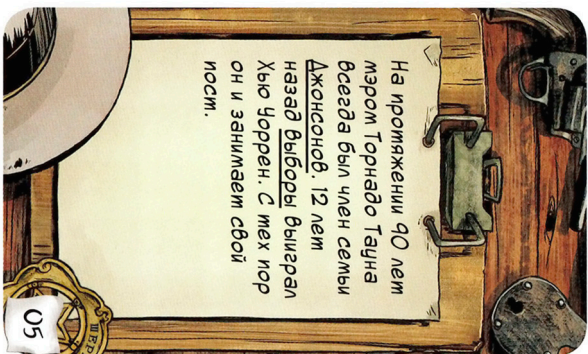 На протяжении 90 лет
мэром Торнадо Тауна
всегда был член семьи
Джонсонов. 12 лет
назад выборы выиграл
Хью Уоррен. С тех пор
он и занимает свой
пост.
ШЕР
05